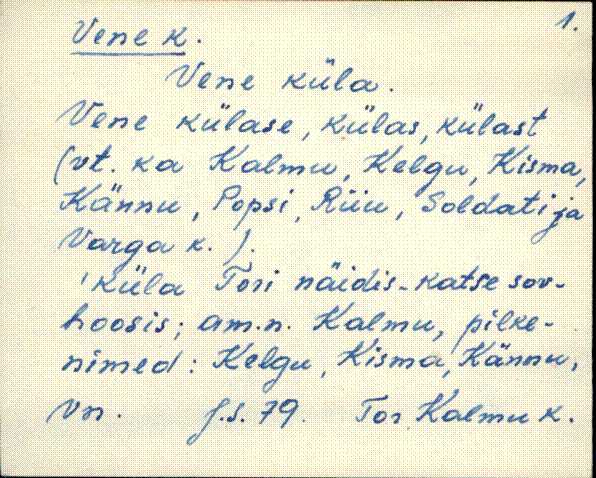 1.
Vene k.
Vene küla.
Vene külase, külas, külast
(vt. ka Kalmu, Kelgu, Kisma,
Kännu, Popsi, Riiu, Soldati ja
Varga k.).
'küla Tori näidis-katse sov-
hoosis; am.n. Kalmu, pilke-
nimed: Kelgu, Kisma, Kännu,
Vn. J.S. 79. Tor Kalmu k.